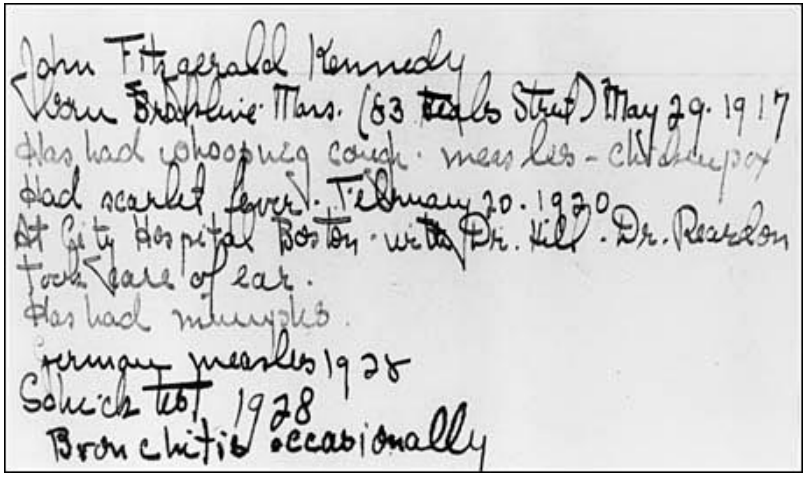 John Fitzgerald Kennedy
Born Brookline Mass. (83 Beals Street) May 29. 1917
Has had whooping cough. measles - chicken pox
Had scarlet fever. February 20. 1920
At City Hospital Boston. with Dr. Hill. Dr. Reardon
took care of ear.
Has had mumps.
German measles 1928
Schick test 1928
Bronchitis occasionally